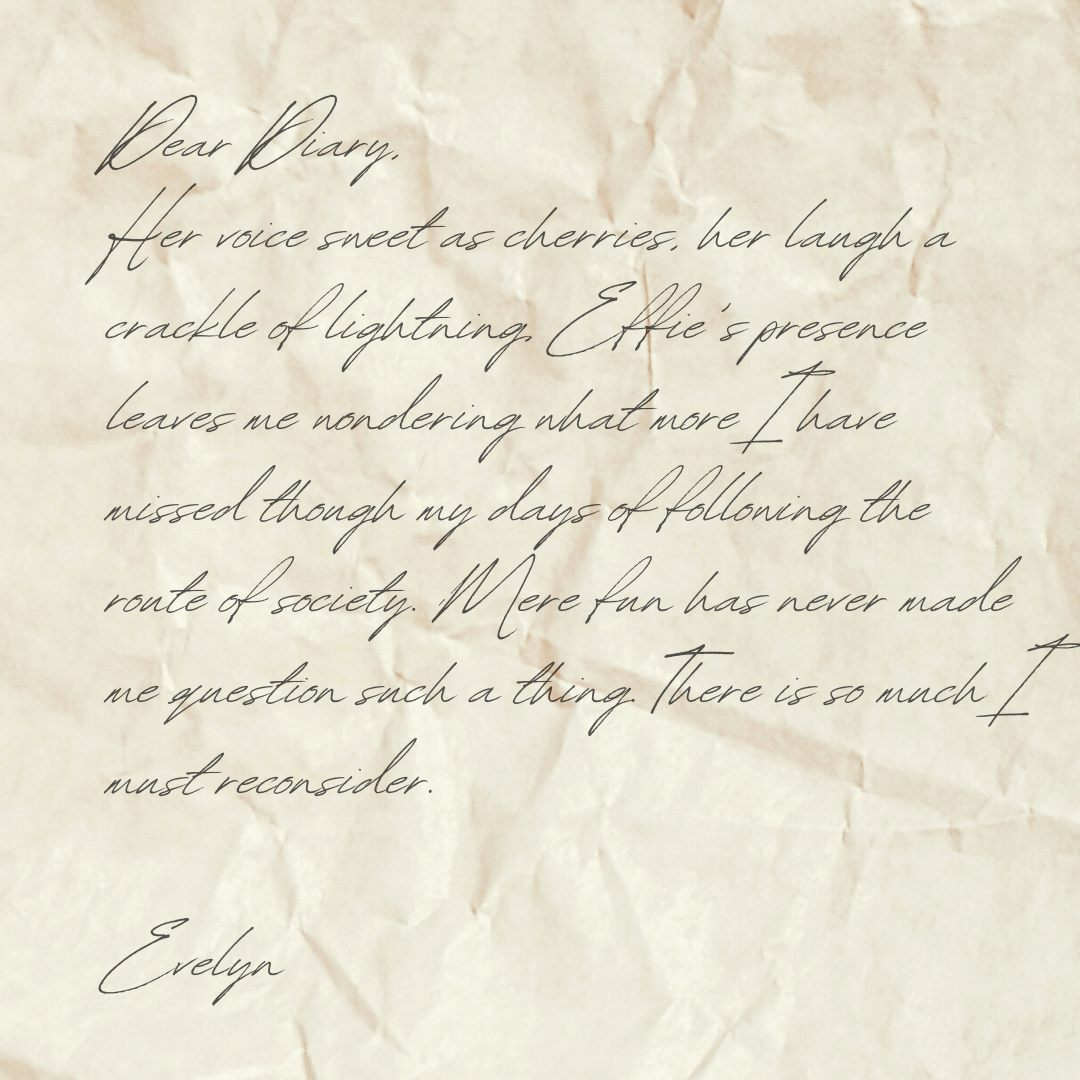 Dear Diary,
Her voice sweet as cherries, her laugh a
crackle of lightning. Effie's presence
leaves me wondering what more I have
missed though my days of following the
route of society. Mere fun has never made
me question such a thing. There is so much I
must reconsider.
Evelyn